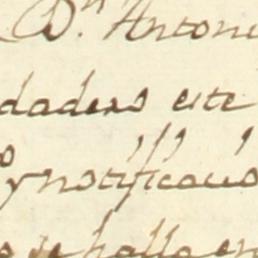 Dn. Antoni
dadero este
y notificacio
se halla en